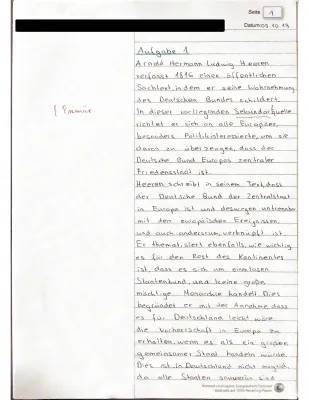 Seite 1
Datum: 03.10.13
Aufgabe 1
Arnold Hermann Ludwig Heeren
verfasst 1816 einen öffentlichen
Sachtext, in dem er seine Wahrnehmung
des Deutschen Bundes schildert.
In dieser vorliegenden Sekundärquelle
richtet er sich an alle Europäer,
besonders Politikinteressierte, um sie
davon zu überzeugen, dass der
Deutsche Bund Europas zentraler
Friedensstaat ist.
Heeren schreibt in seinem Text, dass
der Deutsche Bund der Zentralstaat
in Europa ist und deswegen untrennbar
mit den europäischen Ereignissen,
und auch andersrum, verknüpft ist.
Er thematisiert ebenfalls, wie wichtig
es für den Rest des Kontinentes
ist, dass es sich um einen losen
Staatenbund, und keine große
mächtige Monarchie handelt. Dies
begründet er mit der Annahme, dass
es für Deutschland leicht wäre
die Vorherrschaft in Europa zu
erhalten, wenn es als ein großer
gemeinsamer Staat handeln würde.
Dies ist in Deutschland nicht möglich,
da alle Staaten souverän sind